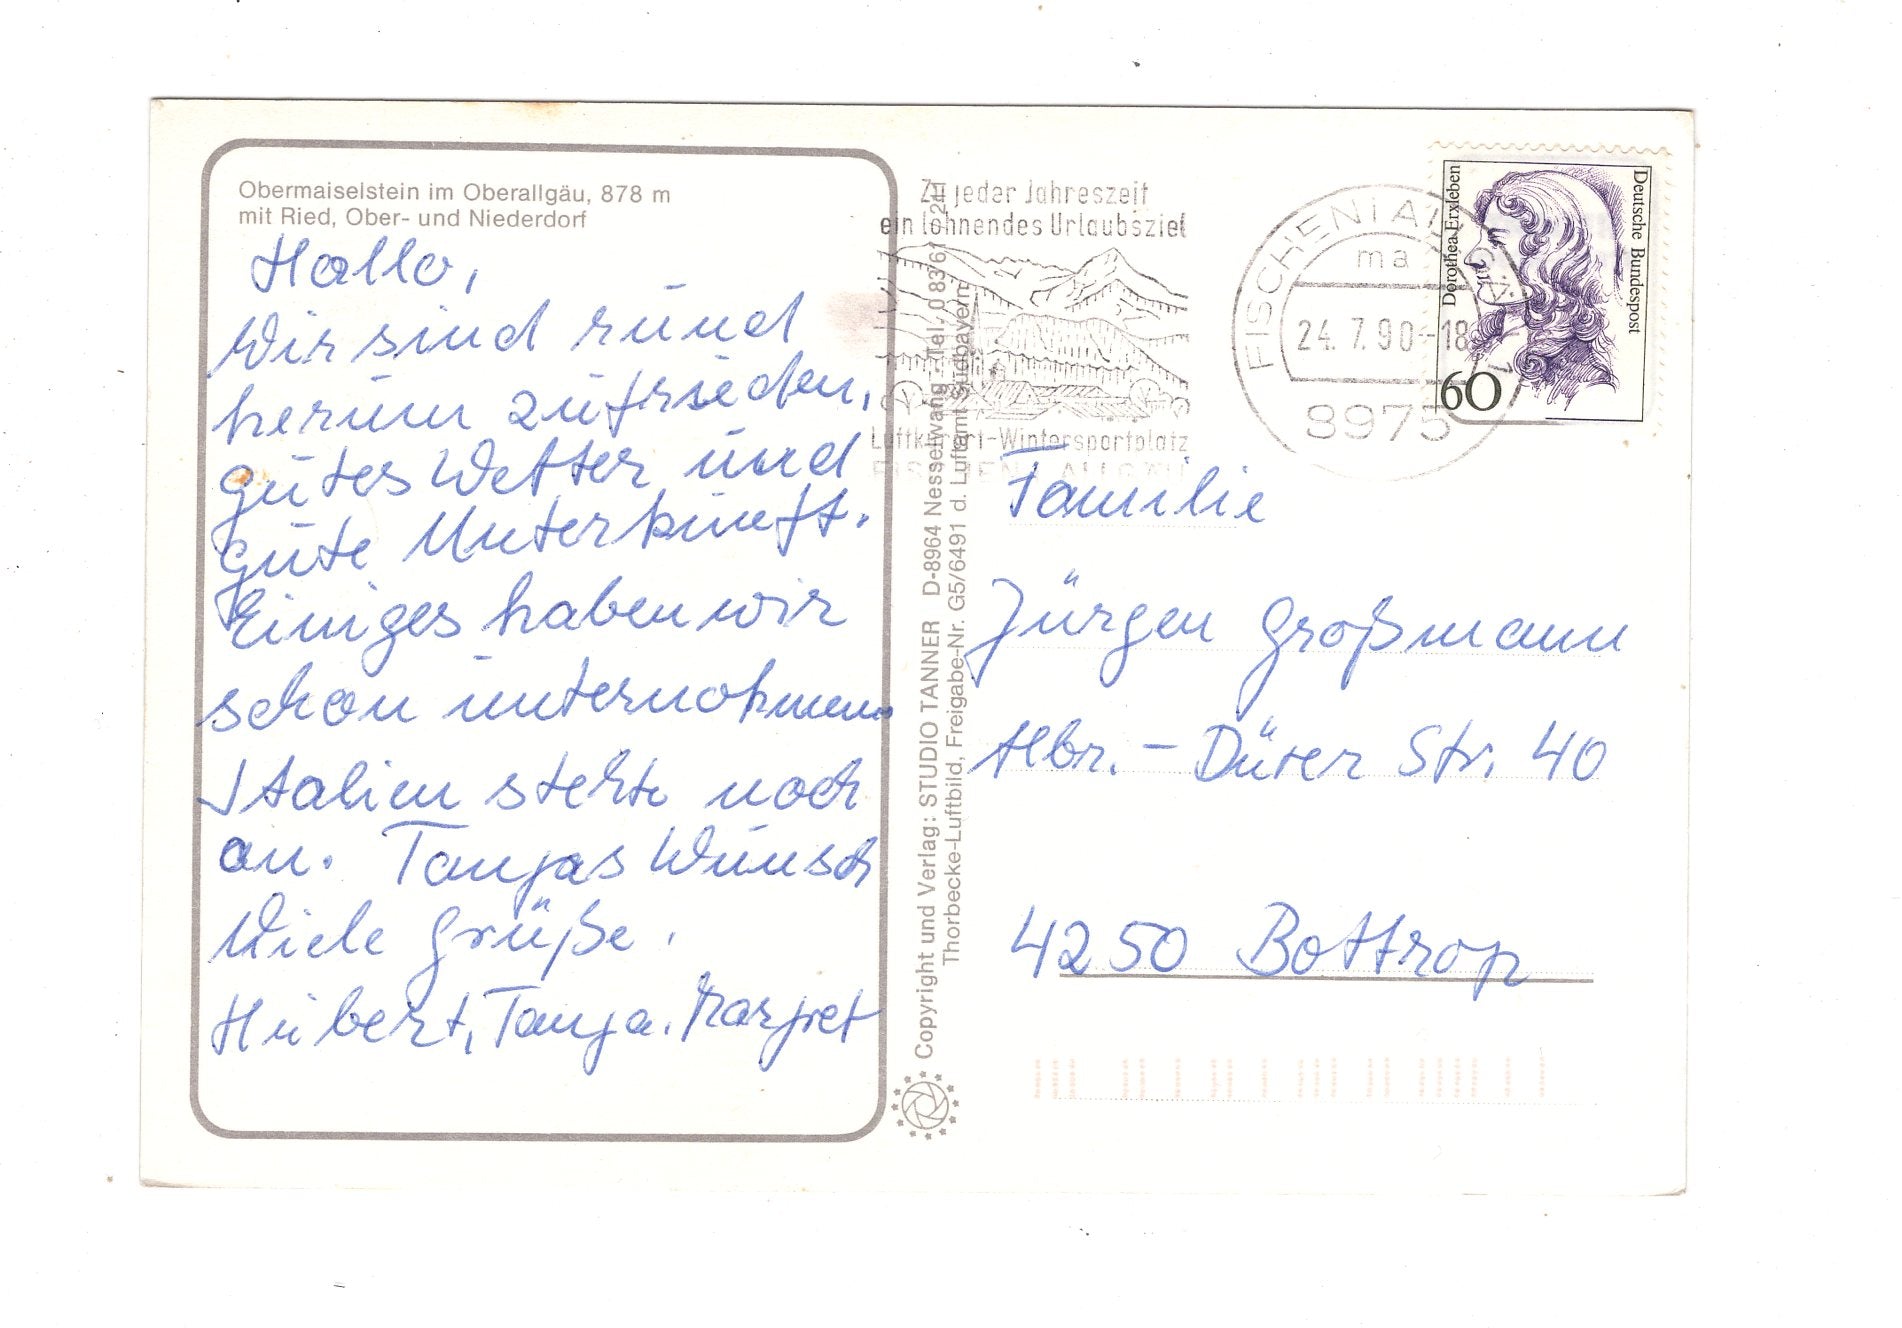 Obermaiselstein im Oberallgäu, 878 m
mit Ried, Ober- und Niederdorf
Hallo,
Wir sind rund
herum zufrieden,
gutes Wetter und
gute Unterkunft.
Einiges haben wir
schon unternohmen.
Italien steht noch
an. Tanjas Wunsch
Viele Grüße.
Hubert, Tanja. Margret
Copyright und Verlag: STUDIO TANNER D-8964 Nesselwang Tel. 0 83 61
Thorbecke-Luftbild, Freigabe-Nr. G5/6491 d. Luftamt Südbayern
Zu jeder Jahreszeit
ein lohnendes Urlaubsziel
Luftkurort-Wintersportplatz
FISCHEN i. ALLGÄU
FISCHEN i ALLGÄU
ma
24.7.90-18
8975
Dorothea Erxleben
Deutsche Bundespost
60
Familie
Jürgen Großmann
Albr.-Dürer Str. 40
4250 Bottrop